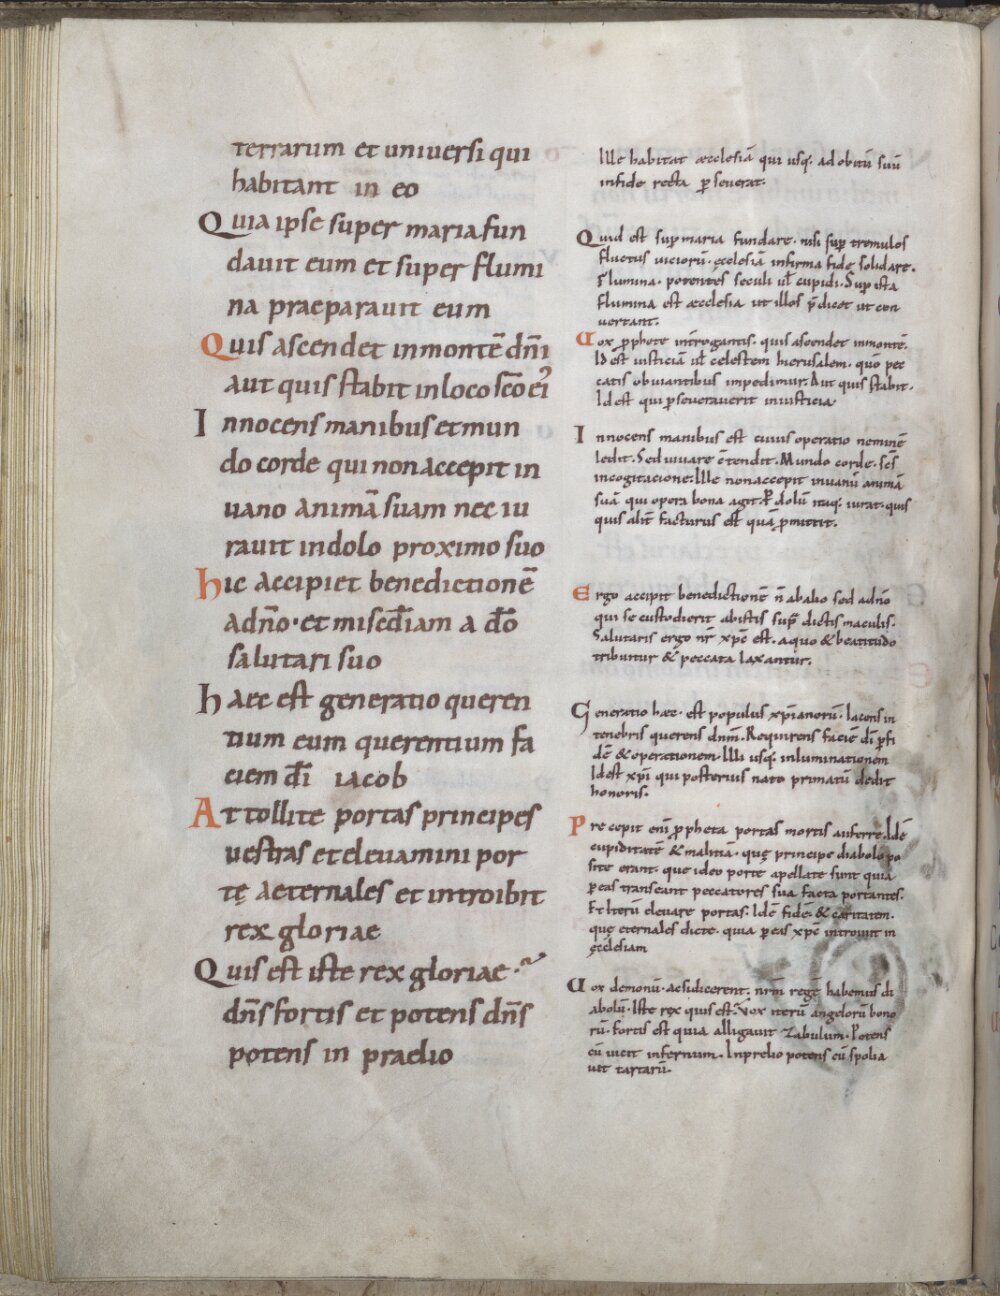 terrarum et uniuersi qui
habitant in eo
Quia ipse super maria fun
dauit eum et super flumi
na praeparauit eum
Quis ascendet inmontē dn̄i
aut quis stabit inloco sc̄o ei᷒
Innocens manibus et mun
do corde qui non accepit in
uano animā suam nec iu
rauit indolo proximo suo
hic accipiet benedictionē
adn̄o · et misc̄diam a d̄o
salutari suo
haec est generatio queren
tium eum querentium fa
ciem d̄i iacob
Attollite portas principes
uestras et eleuamini por
tę aeternales et introibit
rex gloriae
Quis est iste rex gloriae ·
dn̄s fortis et potens dn̄s
potens in praelio
Ille habitat æcclesiā qui usq; ad obitū suū
infide recta pseuerat.
Quid est sup maria fundare · nisi sup tremulos
fluctus uiciorū · ęcclesiā infirma fide solidare.
Flumina · potentes seculi ul̄ cupidi. Sup ista
flumina est æcclesia ut illos p̄dicet ut con
uertant.
Uox pphete introgantis · quis ascendet inmontē.
Id est iusticiā ul̄ celestem hierusalem · quō pec
catis obuiantibus impedimur. Aut quis stabit.
Id est qui pseuerauerit iniusticia
Innocens manibus est cuius operatio neminē
ledit. Sed iuuare c̄tendit. Mundo corde · sc̄s
incogitacione. Ille non accepit inuanū animā
suā qui opera bona agit. dolū itaq; iurat · quis
quis alit̄ facturus est quā pmittit.
Ergo accipit benedictionē n̄ abalio sed adn̄o
qui se custodierit abistis sup dictis maculis.
Salutaris ergo nr̄ xp̄c est · a quo & beatitudo
tribuitur & peccata laxantur.
Generatio hæc · est populus xp̄ianorū · Iacens in
tenebris querens dn̄m. Requirens faciē d̄i p fi
dē & operationem. Illi usq; inluminationem
Id est xp̄i qui posterius nato primatū dedit
honoris.
Precepit eni ppheta portas mortis auferre. Idē
cupiditatē & malitiā · quę principe diabolo po
site erant · que ideo porte apellate sunt quia
p eas transeant peccatores sua facta portantes.
Et Iterū eleuare portas. Idē fidē · & caritatem ·
quę eternales dicte · quia p eas xp̄c introiuit in
ęcclesiam
Uox demonū · ac si dicerent · nr̄m regē habemus di
abolū · Iste rex quis est. Vox iterū angelorū bono
rū · fortis est quia alligauit zabulum · Potens
cū uicit infernum · Inprelio potens cū spolia
uit tartarū ·